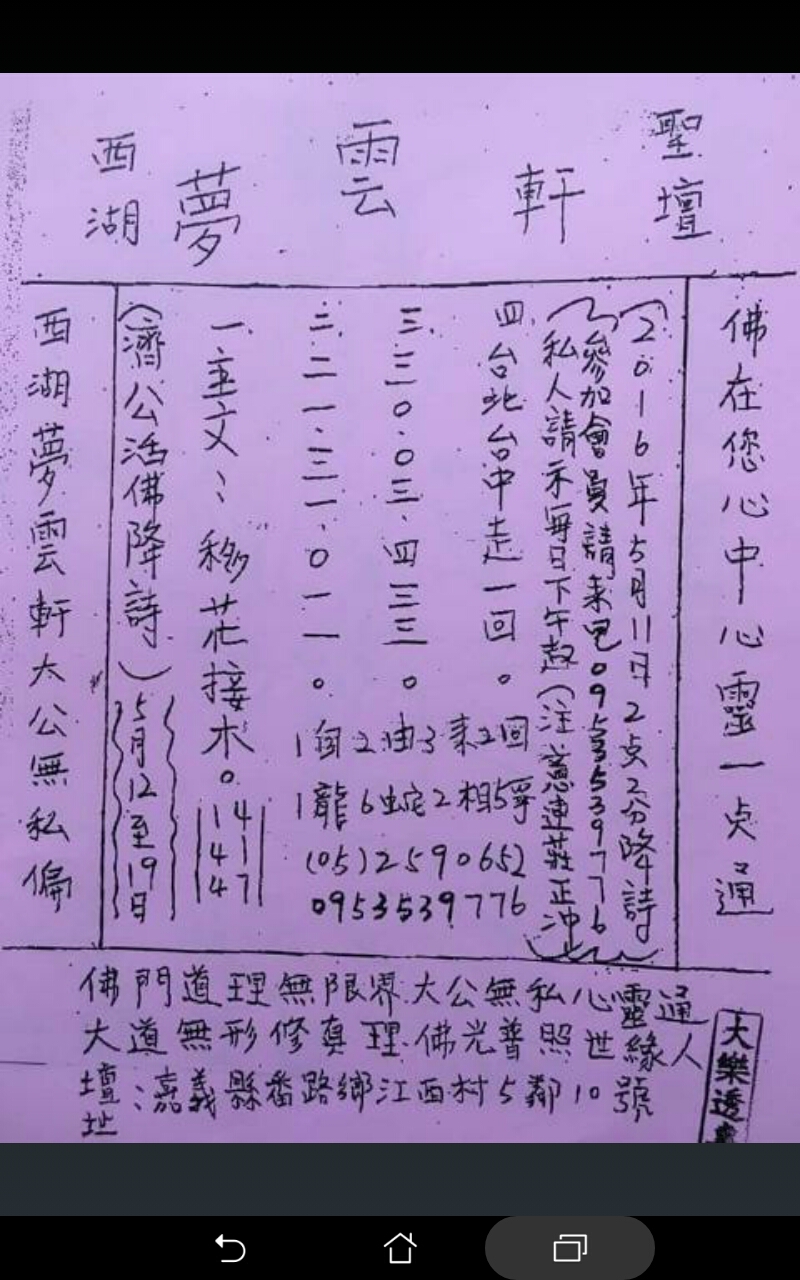 西湖 夢雲軒 聖壇
佛在您心中心靈一点通
(2016年5月11日2点2分降詩
參加會員請來電0953539776
私人請示每日下午起(注意連莊正沖
四、台北台中走一回。
三、三0.0三、四三三。
二、二一、三一、0一一。
一、主文:移花接木。
14
41
47
1自2由3来2回
1龍6蛇2相5爭
(05)2590652
0953539776
(濟公活佛降詩)
5月12至19日
西湖夢雲軒大公無私偏
佛門道理無限界大公無私心靈通
大道無形修真理佛光普照世緣人
壇址:嘉義縣番路鄉江西村5鄰10號
大樂透